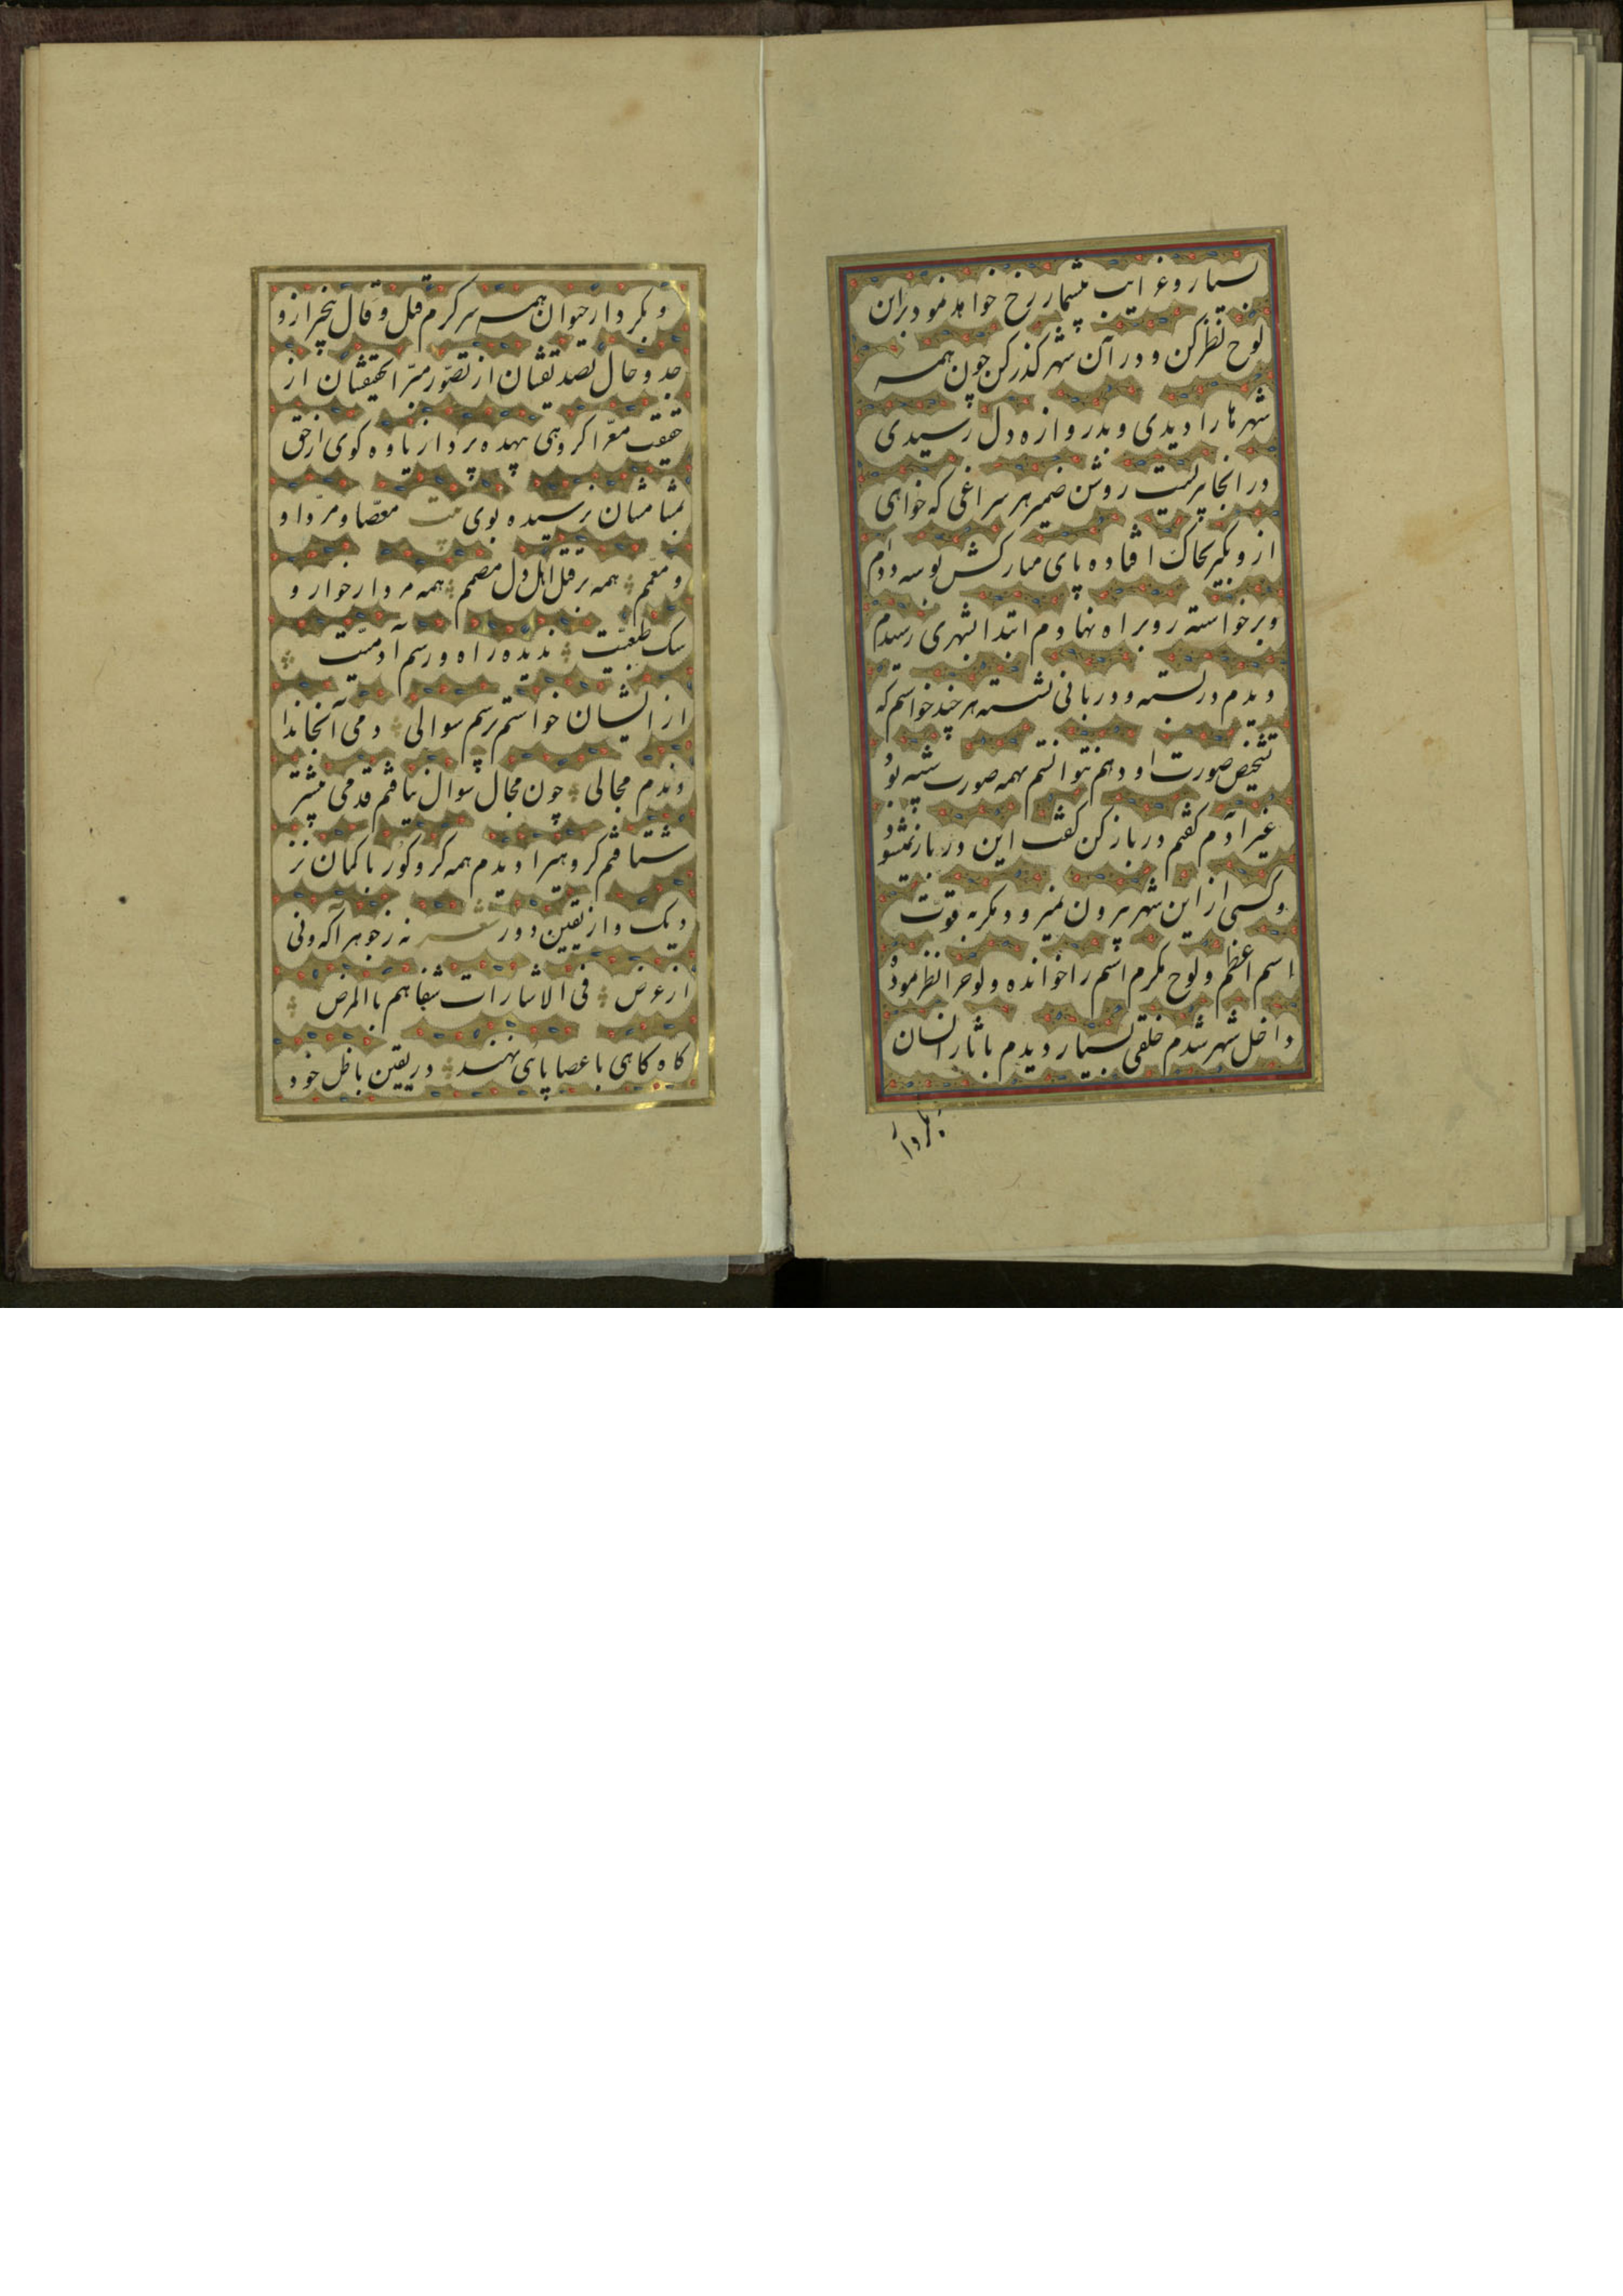 بسیار و غرایب بیشمار رخ خواهد نمود بر این
لوح نظر کن و در آن شهر کذر کن چون همه
شهرها را دیدی و بدروازه دل رسیدی
در انجا پریست روشن ضمیر هر سراغی که خواهی
از و بکیر بخاک افتاده پای مبارکش بوسه دادم
و برخواسته رو براه نهادم ابتدا بشهری رسیدم
دیدم در بسته و دربانی نشسته هر چند خواستم که
تشخیص صورت او دهم نتوانستم بهمه صورت شبیه بود
غیر آدم کفتم در باز کن کفت این در باز نمیشود
و کسی از این شهر بیرون نمیرود مکر به قوت
اسم اعظم و لوح مکرم اسم را خوانده و لوحرا نظر نموده
داخل شهر شدم خلقی بسیار دیدم باثار انسان
بکردار
و بکردار حیوان همه سرکرم قیل و قال بیخبر از و
جد و حال تصدیقشان از تصور مبرا تحقیقشان از
حقیقت معرا کروهی بیهده پرداز یاوه کوی از حق
بمشامشان نرسیده بوی معصا و مردا و
و معمم همه بر قتل اهل دل مصمم همه مردار خوار و
سک طبیعت ندیده راه و رسم آدمیت
از ایشان خواستم پرسم سوالی دمی آنجا ندا
وندم مجالی چون مجال سوال نیافتم قدمی پیشتر
شتافتم کروهیرا دیدم همه کر و کور با کمان نز
دیک و از یقین دور نه ز جوهر اکه و نی
از عرض فی الاشارات شفاهم بالمرض
کاه کاهی با عصا پای نهند در یقین باظل خود